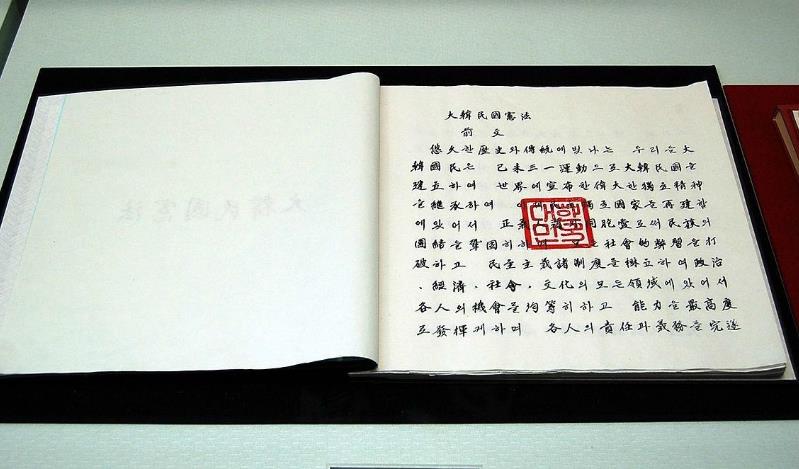 大韓民國憲法
前 文
悠久한歷史와傳統에빛나는 우리들大
韓國民은 己未三一運動으로大韓民國을
建立하여 世界에宣布한偉大한獨立精神
을繼承하여 獨立國家를再建함
에있어서 正義人道와同胞愛로써民族의
團結을鞏固히하며 모든社會的弊習을打
破하고 民主主義諸制度를樹立하여政治
、經濟、社會、文化의모든領域에있어서
各人의機會를均等히하고 能力을最高度
로發揮케하며 各人의責任과義務를完遂